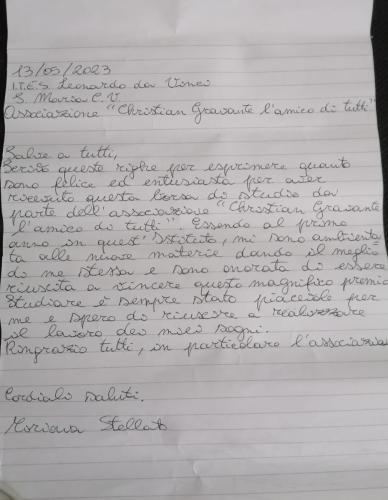 13/05/2023
I.T.E.S. Leonardo da Vinci
S. Maria C.V.
Associazione "Christian Gravante l'amico di tutti"
Salve a tutti,
Scrivo queste righe per esprimere quanto
sono felice ed entusiasta per aver
ricevuto questa borsa di studio da
parte dell'associazione "Christian Gravante
l'amico di tutti". Essendo al primo
anno in quest'Istituto, mi sono ambienta
ta alle nuove materie dando il meglio
di me stessa e sono onorata di essere
riuscita a vincere questo magnifico premio
Studiare è sempre stato piacevole per
me e spero di riuscire a realizzare
il lavoro dei miei sogni.
Ringrazio tutti, in particolare l'associazione
Cordiali saluti.
Stellato